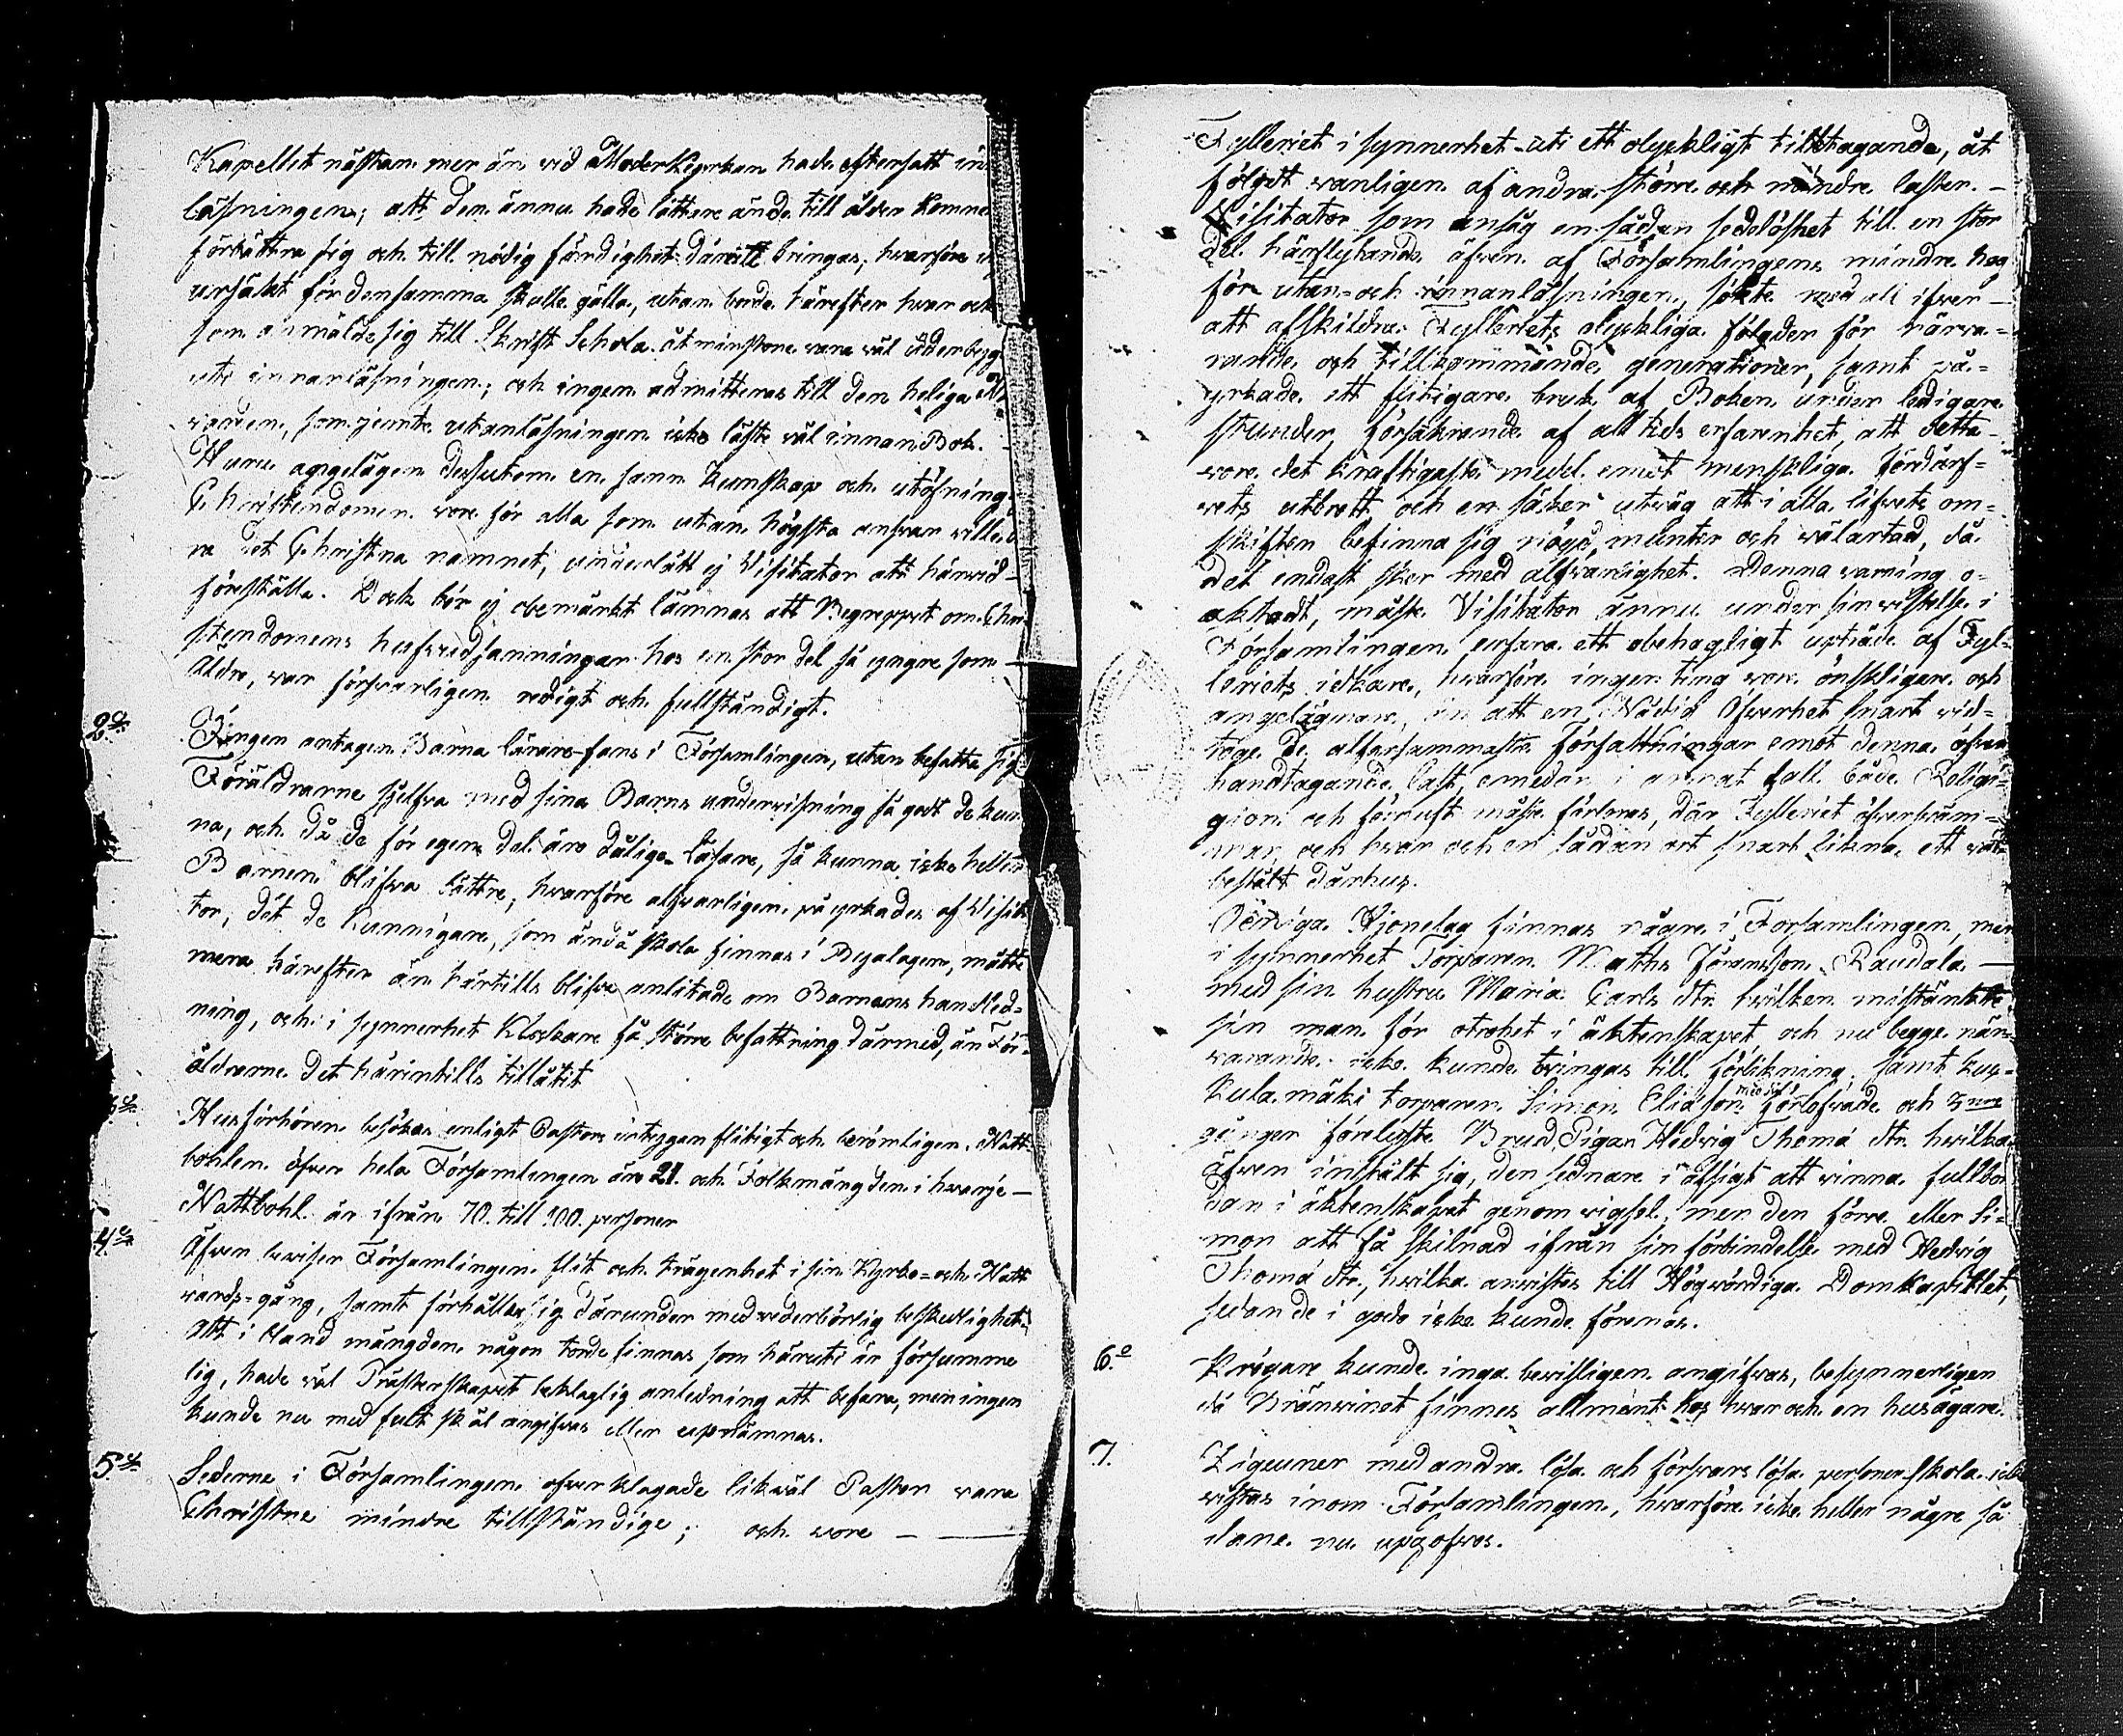 Kapellet nästan mer än vid Moderkyrkan hade eftersatt in
läsningen; att den ännu hade lättare än de till ålder komne
förbättra sig och till nödig färdighet däruti bringas; hvarföre
ursäkt för densamma skulle gälla, utan borde härefter hvar och
som anmälde sig till Skrift Schola åtminstone vara väl underbygd
uti innanläsningen; och ingen admitteras till den heliga
varden, som jemte utanläsningen icke läste väl innan Bok.
Huru angelägen dessutom en sann kunskap och utöfning
Christendomen vore för alla som utan högsta ansvar ville
ra det Christna namnet, underlätt ej Visitator att härvid
föreställa. Dock bör ej obemärkt lämnas att Begreppet om Chri
stendomens hufvudsanningar hos en stor del så yngre som
äldre, var försvarligen redigt och fullständigt.
2o Ingen antagen Barna lärare fans i Församlingen, utan befatta sig
Föräldrarne sjelfva med sina Barns undervisning så godt de kun
na, och då de för egen del äro dålige läsare, så kunna icke heller
Barnen blifva bättre, hvarföre alfvarligen påyrkades af Visita
tor, dät de kunnigare, som ändå skola finnas i Byalagen, måtte
mera härefter än härtills blifva anlitade om Barnens handled=
ning, och i synnerhet Klockare få större befattning därmed, än För=
äldrarne det härintills tillåtit
Husförhören besökas enligt Pastors intygan flitigt och berömligen. Natt
bohlen öfver hela Församlingen äro 21. och Folkmängden i hvarje
Nattbohl är ifrån 70. till 100. personer
4o Äfven beviser Församlingen flit och trägenhet i sin Kyrko= och Natt
vards=gång, samt förhåller sig därunder med vederbörlig beskedlighet.
Att i bland mängden någon torde finnas som häruti är försumme
lig, hade väl Prästerskapet beklaglig anledning att befara, men ingen
kunde nu med fult skäl angifvas eller upnämnas.
5o Sederne i Församlingen öfverklagade likväl Pastor vara
Christne mindre tillständige; och vore
Fylleriet i synnerhet uti ett olyckligt tilltagande, åt
följdt vanligen af andra större och mindre laster.
Visitator som ansåg en sådan sedeslöshet till en stor
del härflytande äfven af Församlingens mindre håg
för utan- och innanläsningen, sökte med all ifver
att afskildra Fylleriets olyckliga följder för närva=
rande och tillkommande generationer, samt på=
yrkade ett flitigare bruk af Boken under ledigare
stunder, försäkrande af alltids erfarenhet, att detta
vore det kraftigaste medel emot menskliga förderf=
vets utbrott och en säker utväg att i alla lifvets om=
skiften befinna sig nögd, munter och välartad, då
det endast sker med alfvarsamhet. Denna varning o=
aktadt, måste Visitator ännu under sin vistelse i
Församlingen erfara ett obehagligt uptråde af Fyl=
leriets idkare, hvarföre ingen ting vore önskligare och
angelägnare, än att en Nådig Öfverhet snart vid=
toge de alfvarsammaste författningar emot denna öfver
handtagande last, emedan i annat fall både Religi=
gion och förnuft måste förloras, där Fylleriet öfversväm=
mar och hvar och en sådan ort snart likna ett väl
bestält dårhus.
Oeniga Hjonelag finnas någre i Forsamlingen, men
i synnerhet Torparen Matts Jöransson Raudala
med sin hustru Maria Carls dtr. hvilken misstänkte
sin man för otrohet i äktenskapet och nu begge när=
varande icke kunde bringas till förlikning; samt kus=
kula mäki torparen Simon Eliasson med sin förlofvade och 3ne
gånger förelyste Brud Pigan Hedvig Thomæ dtr. hvilka
äfven instält sig, den sednare i afsigt att vinna fullbor
dan i äktenskapet genom vigsel, men den förre eller Si=
mon att få skilnad ifrån sin förbindelse med Hedvig
Thomæ dtr., hvilka anvistes till Högvördiga Domkapitlet,
sedan de i godo icke kunde förenas.
6.o Krögare kunde inga bevisligen angifvas, besynnerligen
då Bränvinet finnes allmänt hos hvar och en husägare.
7. Zigeuner med andra lösa och försvarslösa personer skola icke
vistas inom Församlingen, hvarföre icke heller någre så
dane nu upgofvos.